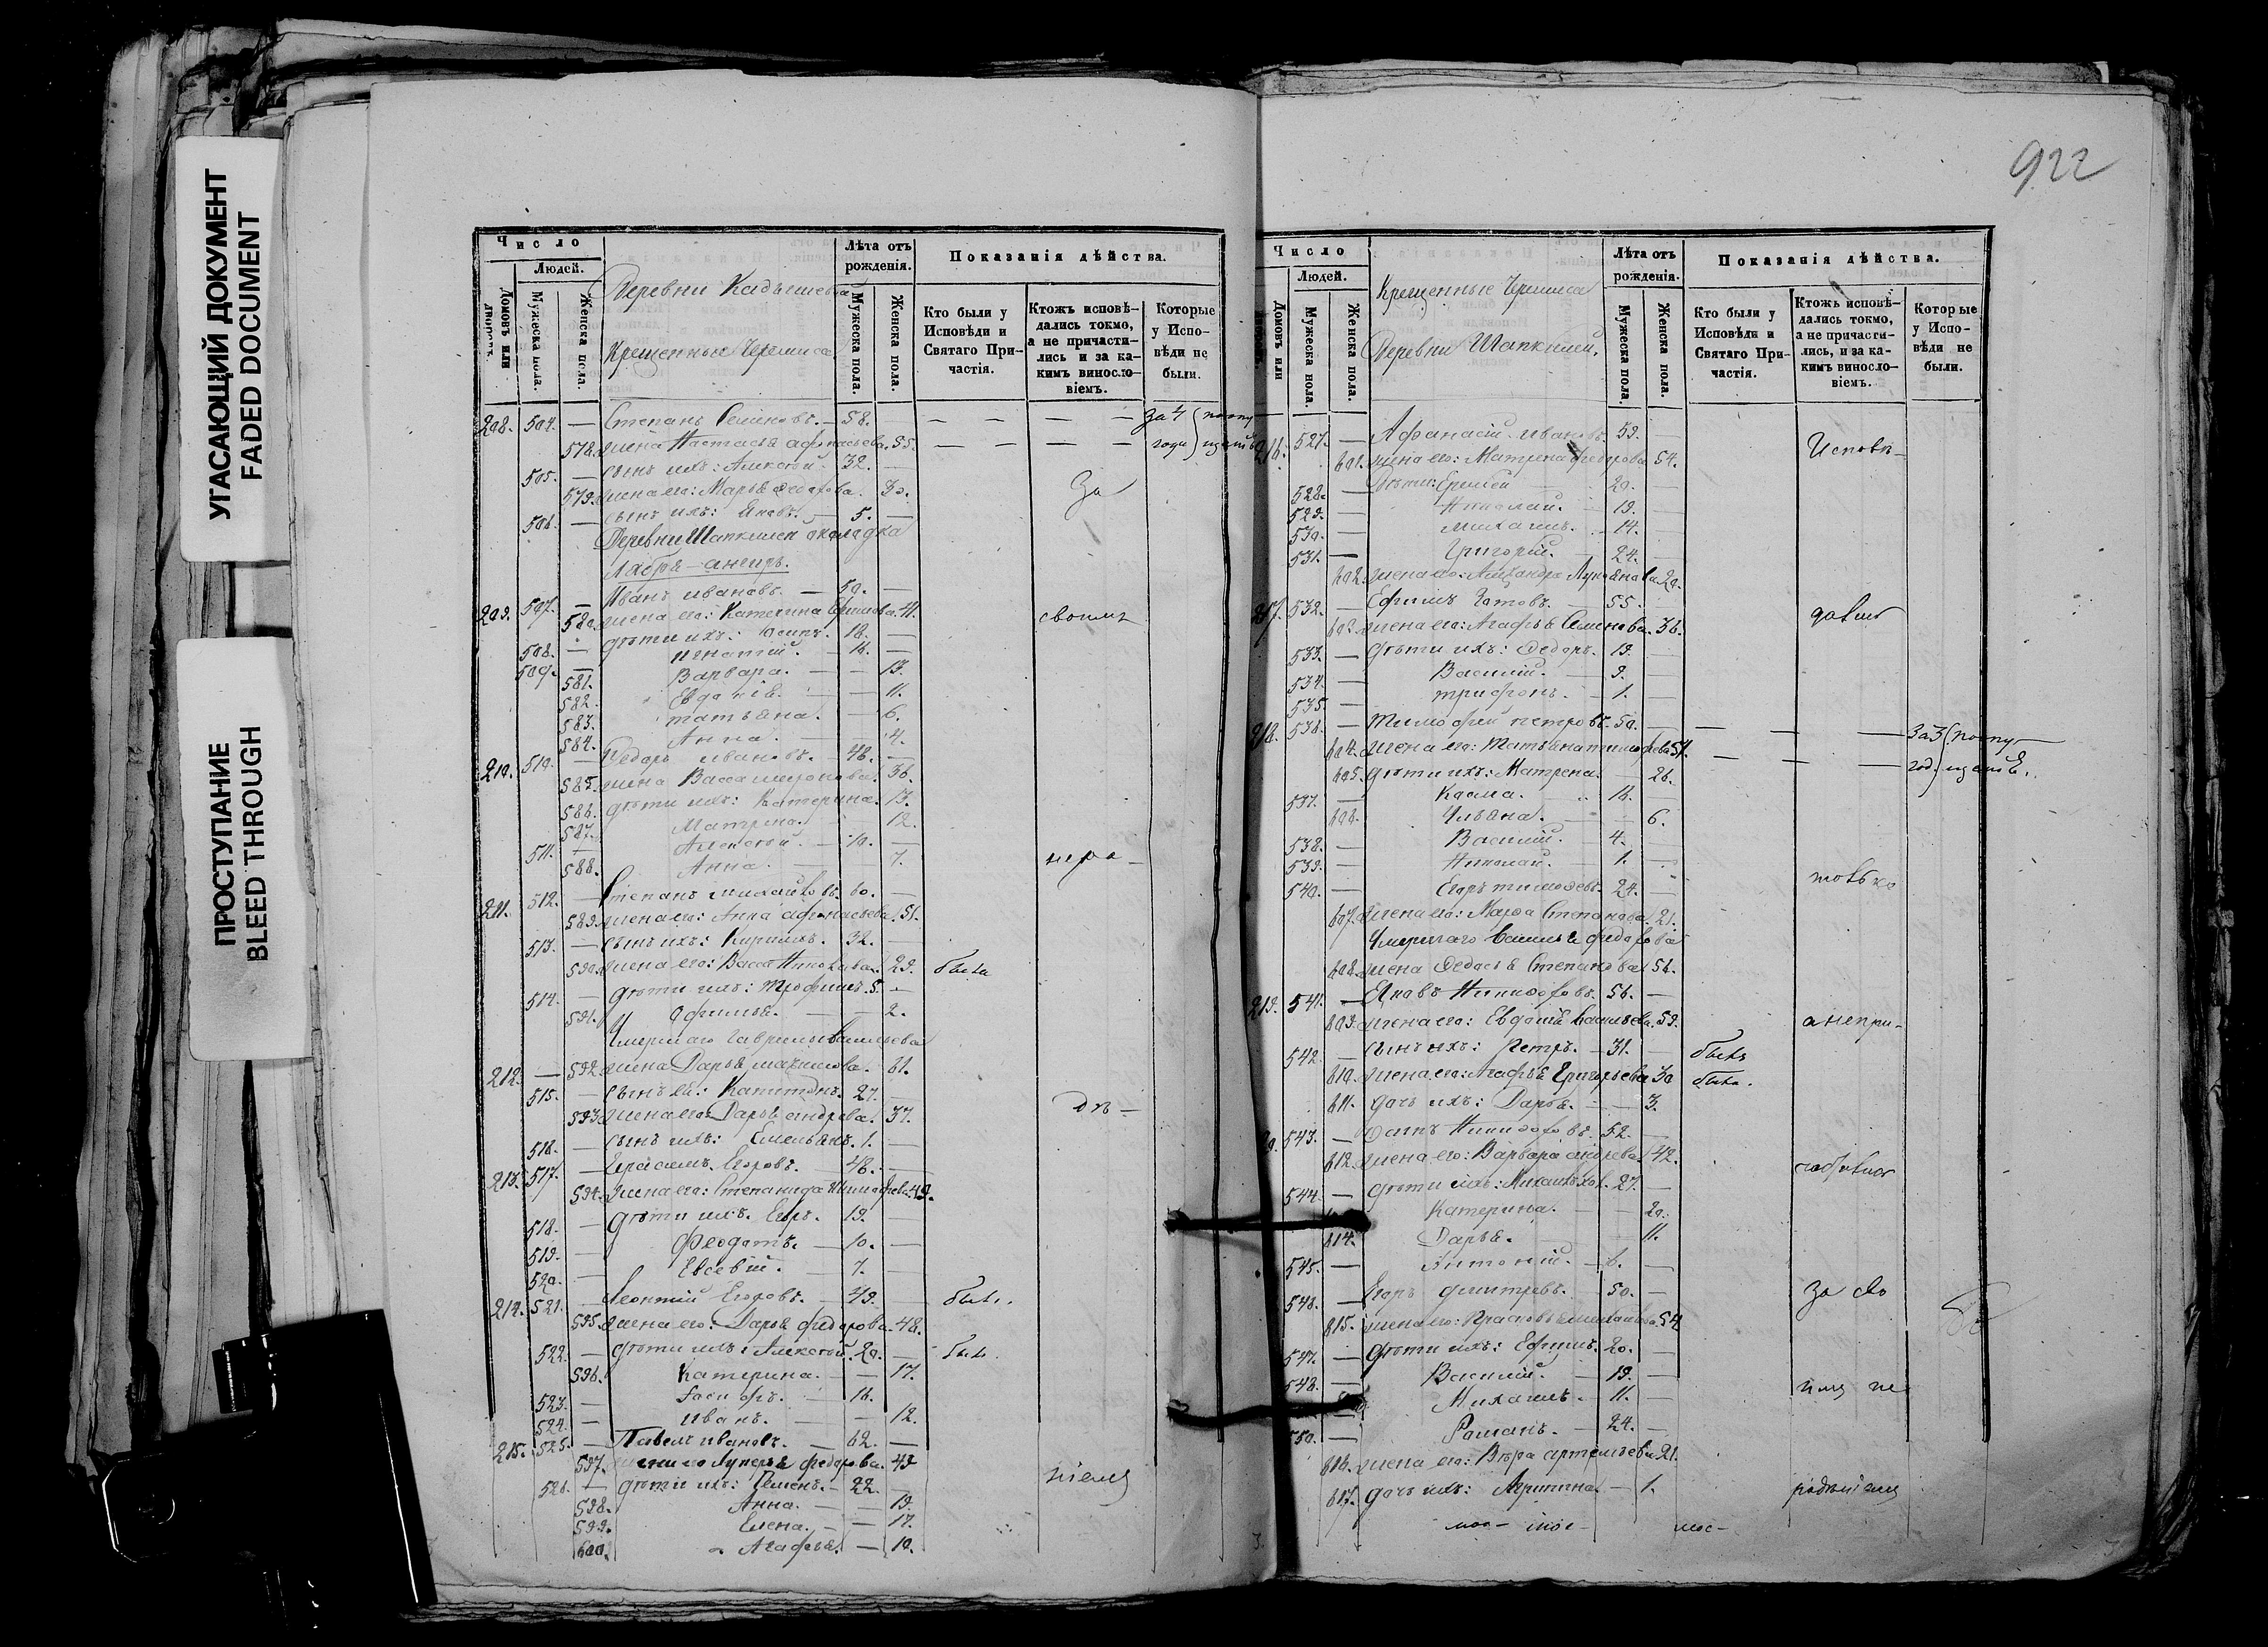 УГАСАЮЩИЙ ДОКУМЕНТ
FADED DOCUMENT
ПРОСТУПАНИЕ
BLEED THROUGH
Число
Людей.
Домовъ или дворовъ.
Мужеска пола.
Женска пола.
Деревни
Крещенные Черемиса
Лѣта отъ рожденія.
Мужеска пола.
Женска пола.
Показанія дѣйства.
Кто были у Исповѣди и Святаго Причастія.
Ктожъ исповѣдались токмо, а не причастились и за какимъ винословіемъ.
Которые у Исповѣди не были.
208. 504. — Степанъ Семеновъ. — 58. — за 4
578. жена Настасья Афонасьева. 55. — года
505. — сынъ ихъ: Алексѣй. 32. — за
579. жена его: Марья Федорова. 30.
506. — сынъ ихъ: Яковъ. 5. —
Деревни Шапкилей околодка
209. 507. — Иванъ Ивановъ. — 50. —
580. жена его: Катерина 41. своимъ
508. — дѣти ихъ: Осипъ. 18. —
509. — Игнатій. — 16. —
581. Варвара. — — 13.
582. Евдокія. — — 11.
583. Татьяна. — 6.
584. Анна. — 4.
210. 510. — Федоръ Ивановъ. — 46. —
585. жена Васса Миронова. 36.
586. дѣти ихъ: Катерина. 13.
587. Матрена. — 12.
511. — Алексѣй. — 10. —
588. Анна. — 7. нера-
211. 512. — Степанъ Михайловъ. 60. —
589. жена его: Анна Афонасьева. 51.
513. — сынъ ихъ: Кирилъ. 32. —
590. жена его: Васса 29. была
514. — дѣти ихъ: Трофимъ. 5. —
591. Афимья. — — 2.
Умершаго Гаврила Васильева
212. — 592. жена Дарья Максимова. 61.
515. — сынъ ея: Капитонъ. 27. —
593. жена его: Дарья Андрева. 37. дѣ-
516. — сынъ ихъ: Емельянъ. 1. —
213. 517. — Герасимъ Егоровъ. — 48. —
594. жена его: Степанида 49.
518. — дѣти ихъ: Егоръ. 19. —
519. — Феодотъ. — 10. —
520. — Евсевій. — 7. —
214. 521. — Леонтій Егоровъ. — 49. — былъ.
595. жена его: Дарья Федорова. 48.
522. — дѣти ихъ: Алексѣй. 20. — былъ.
596. Катерина. — — 17.
523. — 16. —
524. — Иванъ. — — 12.
215. 525. — Павелъ Ивановъ. — 62. —
597. жена его Лукерья Федорова. 49
526. — дѣти ихъ: Семенъ. — 22. — ніемъ
598. Анна. — — 19.
599. Елена. — — 17.
600. Агафья. — 10.
922
Число
Людей.
Домовъ или
Мужеска пола.
Женска пола.
Крещенные Черемиса
Деревни Шапкилей.
Лѣта отъ рожденія.
Мужеска пола
Женска пола.
Показанія дѣйства.
Кто были у Исповѣди и Святаго Причастія.
Ктожъ исповѣдались токмо, а не причастились, и за какимъ винословіемъ.
Которые у Исповѣди не были.
216. 527. — Афанасій Ивановъ. 59. — Исповѣ-
601. жена его: Матрена Федорова 54.
528. — Дѣти: 20. —
529. — Николай. — 19. —
530. — Михаилъ. — 14. —
531. — Григорій. — 24. —
602. жена его: 20.
217. 532. — Ефимъ — 55. —
603. жена его: Агафья Семенова. 36.
533. — дѣти ихъ: Федоръ. 19. —
534. — Василій. — 9. —
535. — Трифонъ. — 1. —
218. 536. — Тимофей Петровъ. 50. — за 3
604. жена его: Татьяна 51. — год.
605. дѣти ихъ: Матрена. — 26.
537. — 16. —
606. Ульяна. — — 6.
538. — Василій. — 4. —
539. — Николай. — 1. —
540. — Егоръ Тимофеевъ. 24. — только
607. жена его: Марфа Степанова. 21.
Умершаго Василья Федорова
608. жена Федосья Степанова. 56.
219. 541. — Яковъ Никифоровъ. 56. —
609. жена его: Евдокія Васильева. 59. а непри-
542. — сынъ ихъ: Петръ. — 31. — былъ
610. жена его: Агафья Григорьева 30 была.
611. дочь ихъ: Дарья. — — 3.
543. — Никифоровъ. 52. —
612. жена его: Варвара Андрева. 42.
544. — дѣти ихъ: 27. —
Катерина. — — 20.
614. Дарья. — 11.
545. — Антоній. — 6. —
546. — Егоръ Дмитревъ. — 50. — за сво
615. жена его: Прасковья 54
547. — дѣти ихъ: Ефимъ. 20. —
548. — Василій. — 19. — имъ не
— Михаилъ. — 11. —
550. — Романъ. — 24. —
616. жена его: Вѣра Артемьева 21.
617. дочь ихъ: Агрипина. — 1. радѣніемъ